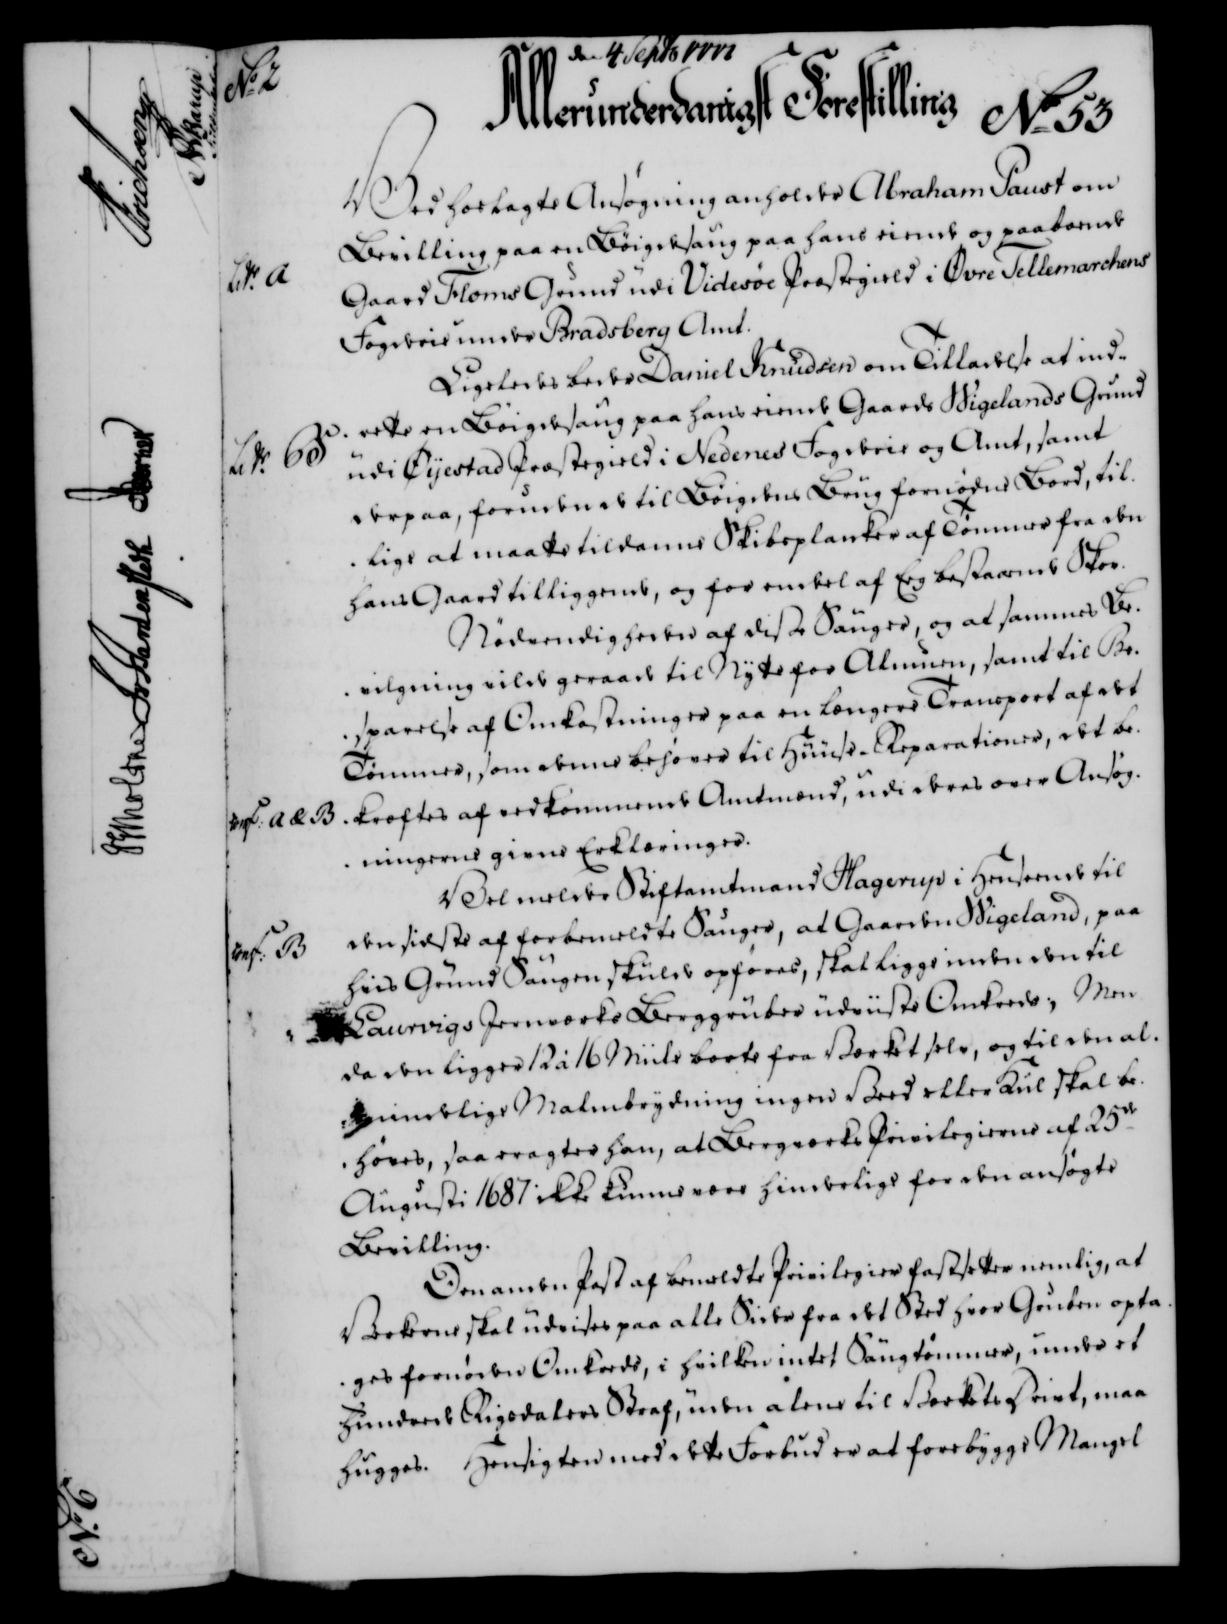 No 2
den 4 Septbr
Allerunderdanigst Forestilling
No 53
Ved hoslagte Ansøgning anholder Abraham Paust om
Bevilling paa en Bøigdesaug paa hans eiende og paaboende
Litr. A
Gaard Floms Grund udi Videsøe Præstegield i Øvre Tellemarchens
Fogderie under Bradsberg Amt.
Ligeledes beder Daniel Knudsen om Tilladelse at ind-
rette en Bøigdesaug paa hans eiende Gaards Wigelands Grund
Litr. B
udi Øijestad Præstegield i Nedenes Fogderie og Amt, samt
derpaa, foruden de til Bøigdens Brug fornødne Bord, til-
lige at maatte tildanne Skibsplanker af Tømmer fra den
hans Gaard tilliggende, og for endeel af Eeg bestaaende Skov.
Nødvendigheden af disse Sauger, og at sammes Be-
vilgning vilde geraade til Nytte for Almuen, samt til Be-
sparelse af Omkostninger paa en længere Transport af det
Tømmer, som denne behøver til Huuse-Reparationer, det be-
conf: A & B
kræftes af vedkommende Amtmænd, udi deres over Ansøg-
ningerne givne Erklæringer.
Vel melder Stiftamtmand Hagerup i Henseende til
conf: B
den sidste af forbemeldte Sauger, at Gaarden Wigeland, paa
hvis Grund Saugen skulde opføres, skal ligge inden den til
Laurvigs Jernværks Berggruber udviiste Omkreds; Men
da den ligger 12 à 16 Miile borte fra Værket selv, og til den al-
mindelige Malmbrydning ingen Veed eller Kul skal be-
høves, saa eragter han, at Bergværks Privilegierne af 25de
Augusti 1687 ikke kunne være hinderlige for den ansøgte
Bevilling.
Den anden Post af bemeldte Privilegier fastsetter nemlig, at
Verkerne skal udvises paa alle Sider fra det Sted hvor Gruben opta-
ges fornøden Omkreds, i hvilken intet Saugtømmer, under et
Hundrede Rigsdalers Straf, uden alene til Verkets Drivt, maa
hugges. Hensigten med dette Forbud er at forebygge Mangel
N. 6